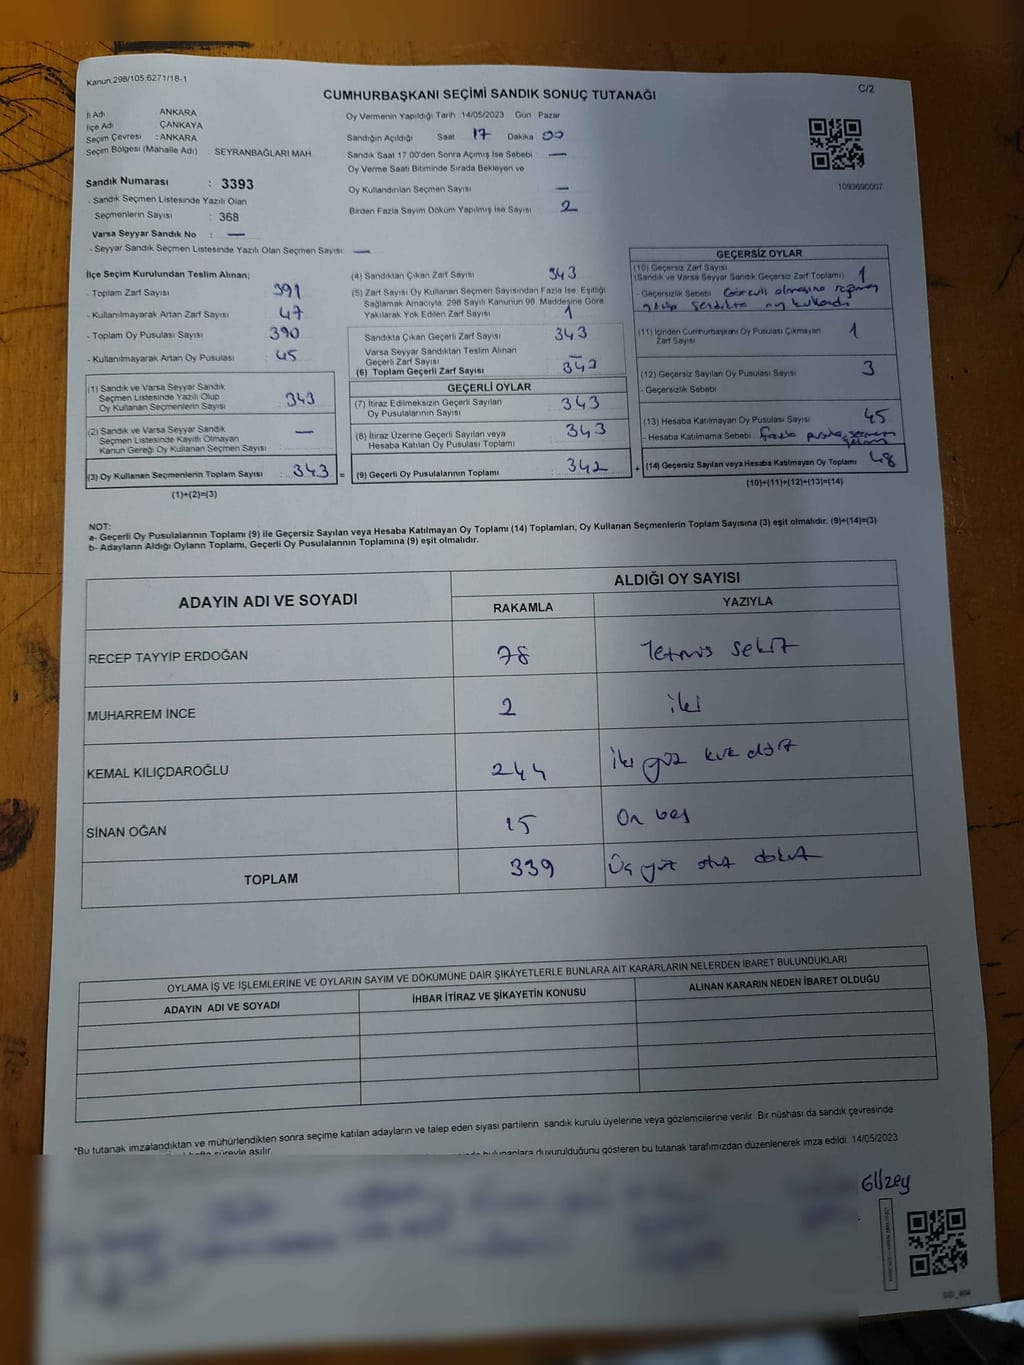 Kanun.298/105.6271/18-1
CUMHURBAŞKANI SEÇİMİ SANDIK SONUÇ TUTANAĞI
C/2
İl Adı ANKARA
İlçe Adı ÇANKAYA
Seçim Çevresi : ANKARA
Seçim Bölgesi (Mahalle Adı) : SEYRANBAĞLARI MAH.
Sandık Numarası : 3393
- Sandık Seçmen Listesinde Yazılı Olan
Seçmenlerin Sayısı : 368
Varsa Seyyar Sandık No : —
- Seyyar Sandık Seçmen Listesinde Yazılı Olan Seçmen Sayısı: —
Oy Vermenin Yapıldığı Tarih :14/05/2023 Gün : Pazar
Sandığın Açıldığı Saat 17 Dakika 00
Sandık Saat 17:00'den Sonra Açılmış İse Sebebi —
Oy Verme Saati Bitiminde Sırada Bekleyen ve
Oy Kullandırılan Seçmen Sayısı —
Birden Fazla Sayım Döküm Yapılmış İse Sayısı 2
1093690007
İlçe Seçim Kurulundan Teslim Alınan;
- Toplam Zarf Sayısı 391
- Kullanılmayarak Artan Zarf Sayısı 47
- Toplam Oy Pusulası Sayısı 390
- Kullanılmayarak Artan Oy Pusulası 45
(1) Sandık ve Varsa Seyyar Sandık
Seçmen Listesinde Yazılı Olup
Oy Kullanan Seçmenlerin Sayısı 343
(2) Sandık ve Varsa Seyyar Sandık
Seçmen Listesinde Kayıtlı Olmayan
Kanun Gereği Oy Kullanan Seçmen Sayısı —
(3) Oy Kullanan Seçmenlerin Toplam Sayısı 343 =
(1)+(2)=(3)
(4) Sandıktan Çıkan Zarf Sayısı 343
(5) Zarf Sayısı Oy Kullanan Seçmen Sayısından Fazla İse, Eşitliği
Sağlamak Amacıyla, 298 Sayılı Kanunun 98. Maddesine Göre
Yakılarak Yok Edilen Zarf Sayısı 1
Sandıkta Çıkan Geçerli Zarf Sayısı 343
Varsa Seyyar Sandıktan Teslim Alınan
Geçerli Zarf Sayısı —
(6) Toplam Geçerli Zarf Sayısı 343
GEÇERLİ OYLAR
(7) İtiraz Edilmeksizin Geçerli Sayılan
Oy Pusulalarının Sayısı 343
(8) İtiraz Üzerine Geçerli Sayılan veya
Hesaba Katılan Oy Pusulası Toplamı 343
(9) Geçerli Oy Pusulalarının Toplamı 342 +
GEÇERSİZ OYLAR
(10) Geçersiz Zarf Sayısı
(Sandık ve Varsa Seyyar Sandık Geçersiz Zarf Toplamı) 1
- Geçersizlik Sebebi Görevli olmasına rağmen
sandıkta oy kullandı
(11) İçinden Cumhurbaşkanı Oy Pusulası Çıkmayan
Zarf Sayısı 1
(12) Geçersiz Sayılan Oy Pusulası Sayısı 3
- Geçersizlik Sebebi
(13) Hesaba Katılmayan Oy Pusulası Sayısı 45
- Hesaba Katılmama Sebebi fazla pusula, seçmen
(14) Geçersiz Sayılan veya Hesaba Katılmayan Oy Toplamı 48
(10)+(11)+(12)+(13)=(14)
NOT:
a- Geçerli Oy Pusulalarının Toplamı (9) ile Geçersiz Sayılan veya Hesaba Katılmayan Oy Toplamı (14) Toplamları, Oy Kullanan Seçmenlerin Toplam Sayısına (3) eşit olmalıdır. (9)+(14)=(3)
b- Adayların Aldığı Oyların Toplamı, Geçerli Oy Pusulalarının Toplamına (9) eşit olmalıdır.
ADAYIN ADI VE SOYADI
ALDIĞI OY SAYISI
RAKAMLA YAZIYLA
RECEP TAYYİP ERDOĞAN 78 Yetmiş sekiz
MUHARREM İNCE 2 iki
KEMAL KILIÇDAROĞLU 244 İki yüz kırk dört
SİNAN OĞAN 15 On beş
TOPLAM 339 Üç yüz otuz dokuz
OYLAMA İŞ VE İŞLEMLERİNE VE OYLARIN SAYIM VE DÖKÜMÜNE DAİR ŞİKÂYETLERLE BUNLARA AİT KARARLARIN NELERDEN İBARET BULUNDUKLARI
ADAYIN ADI VE SOYADI İHBAR İTİRAZ VE ŞİKAYETİN KONUSU ALINAN KARARIN NEDEN İBARET OLDUĞU
*Bu tutanak imzalandıktan ve mühürlendikten sonra seçime katılan adayların ve talep eden siyasi partilerin sandık kurulu üyelerine veya gözlemcilerine verilir. Bir nüshası da sandık çevresinde
hafta süreyle asılır.
bulunanlara duyurulduğunu gösteren bu tutanak tarafımızdan düzenlenerek imza edildi. 14/05/2023